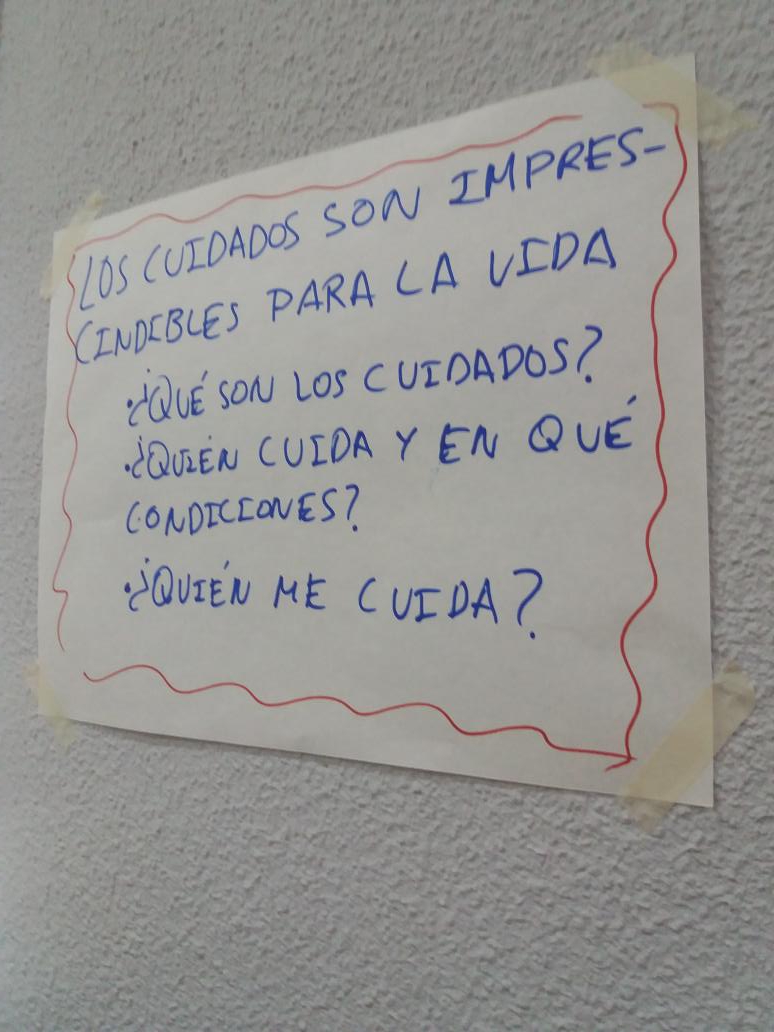 LOS CUIDADOS SON IMPRES-
CINDIBLES PARA LA VIDA
·¿QUÉ SON LOS CUIDADOS?
·¿QUIÉN CUIDA Y EN QUÉ
CONDICIONES?
·¿QUIÉN ME CUIDA?